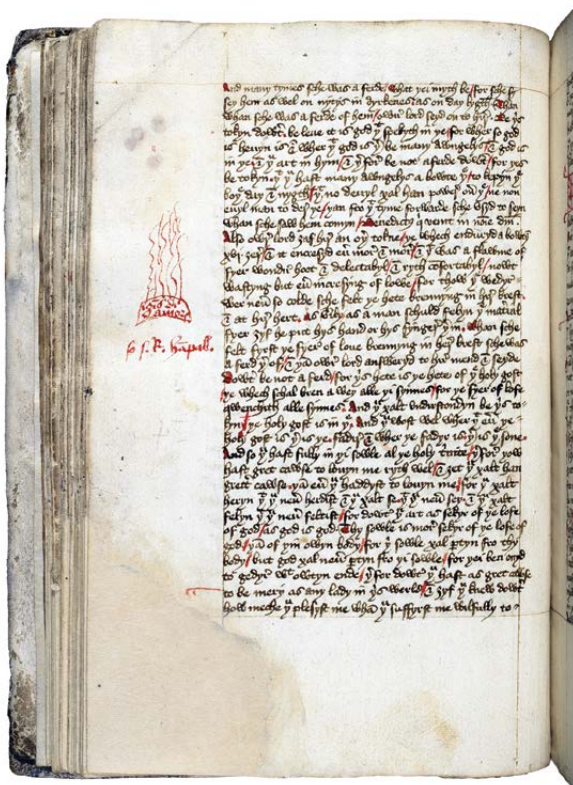 And many tymes sche was a ferde what yei myth be / for sche
sey hem as wel on nytys in dyrkenes as on day lygth / whan
whan sche was a ferde of hem / owr lord seyd on to hir
dowtr be leue it is god yt spekyth in ye / for wher so god
is heuyn is & wher yt god is yr be many awngelys & god is
in ye & yu art in hym / & yrfor be not a ferde dowtr for yes
be tokyn yt yu hast many awngelys a bowte ye / to kepyn ye
boye day & nygth / yt no deuyl xal han power ouyr ye ne non
euyl man to der ye / yan fro yt tyme forwarde sche vsyd to seyn
whan sche saw hem comyn / Benedict9 qui venit in noie dni
Also owr lord gaf hir an oyr tokne / ye whech endured a bowtyn
xvj ȝer / & it encresyd eur mor & mor / & yt was a flawme of
fyer wondir hoot & delectabyl & rygth cofortabyl / nowt
wastyng but eur incresyng of lowe / for thow ye wedyr
wer neur so colde sche felt ye hete brennyng in hir brest
& at hir hert as verily as a man schuld felyn ye material
fyer ȝyf he put hys hand or hys fynger yr in / whan sche
felt fyrst ye fyer of loue brennyng in hir brest sche was
a ferd yr of / & yan owr lord answeryd to hir mend & seyde
dowtr be not a ferd / for ys hete is ye hete of ye holy gost
ye whech schal bren a wey alle yi synnes / for ye fyer of lofe
qwenchith alle synnes / And yu xalt vndirstondyn be ys to-
kyn ye holy gost is in ye / And yu wost wel wher yt eur ye
holy gost is yr is ye fadir & wher ye fadyr is yr is ye sone
And so yu hast fully in yi sowle al ye holy trinite / yrfor yow
hast gret cawse to louyn me rygth wel & ȝet yu xalt han
grett cawse yan eur yu haddyst to louyn me / for yu xalt
heryn yt yu neur herdist & yu xalt se yt yu neur sey & yu xalt
felyn yt yu neur feltist / for dowtr yu art as sekyr of ye lofe
of god / as god is god Thy sowle is mor sekyr of ye lofe of
god / yan of yin owyn body / for yi sowle xal prtyn fro thy
body / but god xal neur prtyn fro yi sowle / for yei ben onyd
to gedyr wt owtyn ende / yrfor dowtr yu hast as gret cawse
to be mery as any lady in ys werld & ȝyf yu knew dowtr
how meche yu plesyst me whan yu suffyrst me wilfully to
so s. R. hampall.